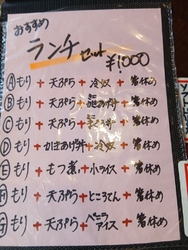 おすすめ
ランチセット
¥1000
Ⓐもり+天ぷら+冷奴+箸休め
Ⓑもり+天ぷら++箸休め
Ⓒもり+天ぷら++箸休め
Ⓓもり+かきあげ丼+冷奴+箸休め
Ⓔもり+もつ煮+小ライス+箸休め
Ⓕもり+天ぷら+ところてん+箸休め
Ⓖもり+天ぷら+バニラアイス+箸休め